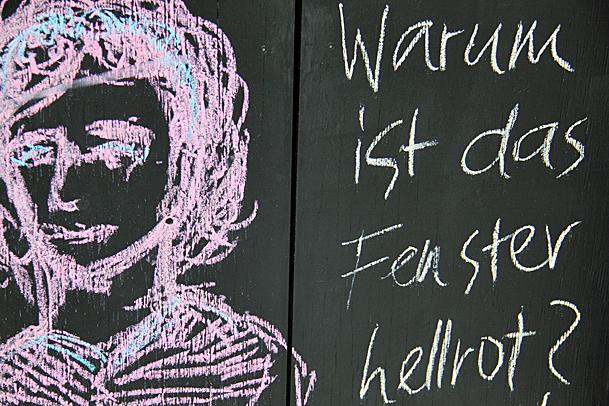 Warum
ist das
Fenster
hellrot?